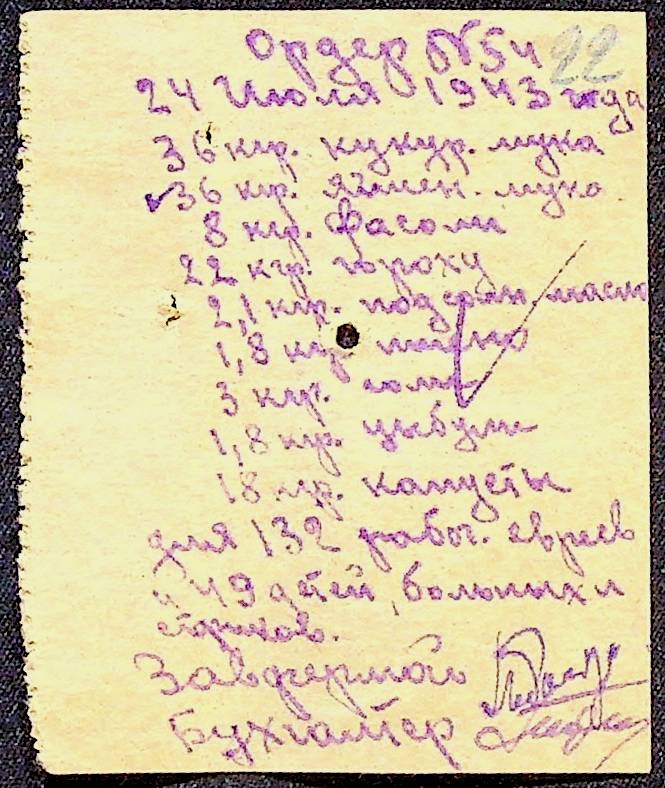 Ордер №54 22
24 Июля 1943 года
36 кгр. кукур. мука
36 кгр. ячмен. мука
8 кгр. фасоли
22 кгр. гороху
2,1 кгр. масло
1,8 кгр
3 кгр. соли
1,8 кгр. цыбули
18 кгр. капусты
для 132 рабоч. евреев
и 49 детей, больных и
стариков.
Завфермой
Бухгалтер